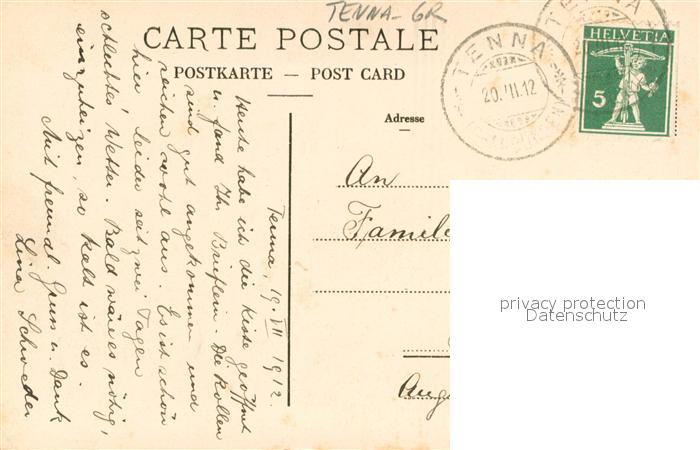 TENNA - GR
CARTE POSTALE
POSTKARTE — POST CARD
TENNA
20.VII.12
TENNA
HELVETIA
5
Adresse
An
Familie
Tenna, 19. VII 1912.
Heute habe ich die Kiste geöffnet
u. fand Ihr Brieflein. Die Rollen
sind gut angekommen und
reichen wohl aus. Es ist schön
hier, leider seit zwei Tagen
schlechtes Wetter. Bald wäre es nötig,
einzuheizen, so kalt ist es.
Mit freundl. Gruss u. Dank
Lina Schroeder
privacy protection
Datenschutz